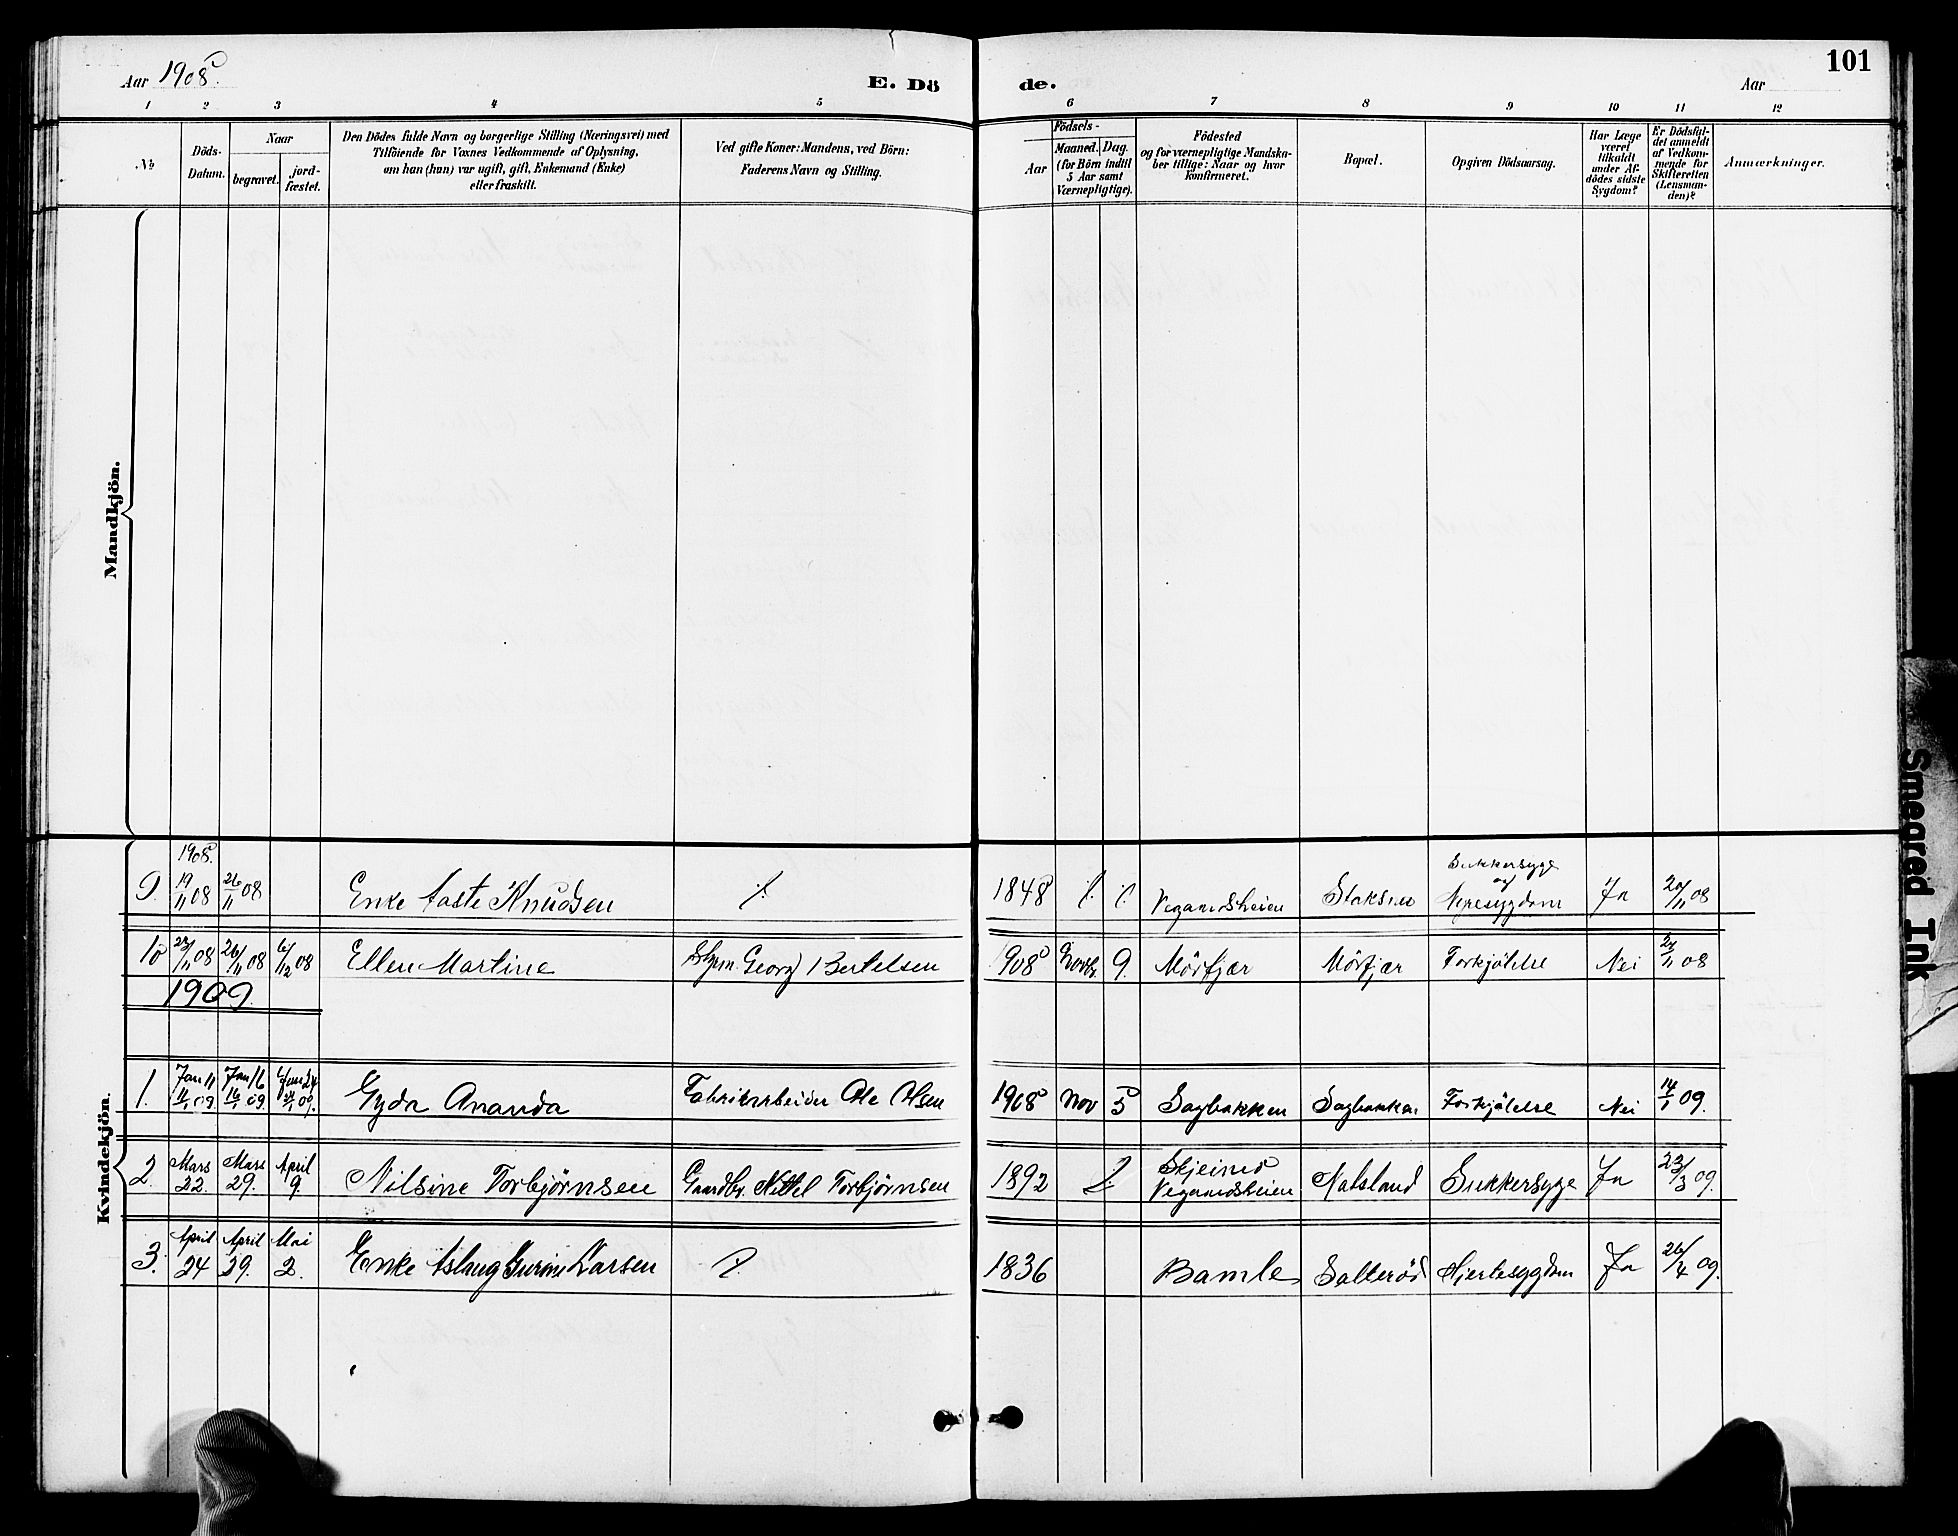 101
Aar 1908.
E. Dö
de.
Aar
1 2 3 4 5 6 7 8 9 10 11 12
No
Döds-
Datum.
Naar
begravet.
jord-
fæstet.
Den Dödes fulde Navn og borgerlige Stilling (Næringsvei) med
Tilföiende for Voxnes Vedkommende af Oplysning,
om han (hun) var ugift, gift, Enkemand (Enke)
eller fraskilt.
Ved gifte Koner: Mandens, ved Börn:
Faderens Navn og Stilling.
Födsels-
Aar
Maaned. Dag.
(for Börn indtil
5 Aar samt
Værnepligtige).
Födested
og for værnepligtige Mandska-
ber tillige: Naar og hvor
konfirmeret.
Bopæl.
Opgiven Dödsaarsag.
Har Læge
været
tilkaldt
under Af-
dödes sidste
Sygdom?
Er Dödsfal-
det anmeldt
af Vedkom-
mende for
Skifteretten
(Lensman-
den)?
Anmærkninger.
Mandkjön.
Kvindekjön.
1908.
9. 19/11 08 26/11 08 Enke Aaste Knudsen ./. 1848 ./. ./. Vegaardsheien Staksnes Sukkersyge og Nyresygdom Ja 20/11 08
10 23/11 08 26/11 08 6/12 08 Ellen Martine Georg Bertelsen 1908 Novbr. 9. Mörfjær Mörfjær Forkjölelse Nei 08
1909.
1. Jan 11 11/1 09. Jan 16 16/1 09. Jan 24 24/1 09. Gyda Ananda Fabrikarbeider Ole Olsen 1908 Nov 5 Sagbakken Sagbakken Forkjölelse Nei 14/1 09.
2. Mars 22. Mars 29. April 9. Nilsine Torbjørnsen Gaardbr. Kittel Torbjørnsen 1892 ./. Skjeined Vegaardsheien Natsland Sukkersyge Ja 23/3 09.
3. April 24 April 29. Mai 2. Enke Aslaug Gurine Larsen ./. 1836 Bamle Salterød Hjertesygdom Ja 26/4 09.
Smeared Ink